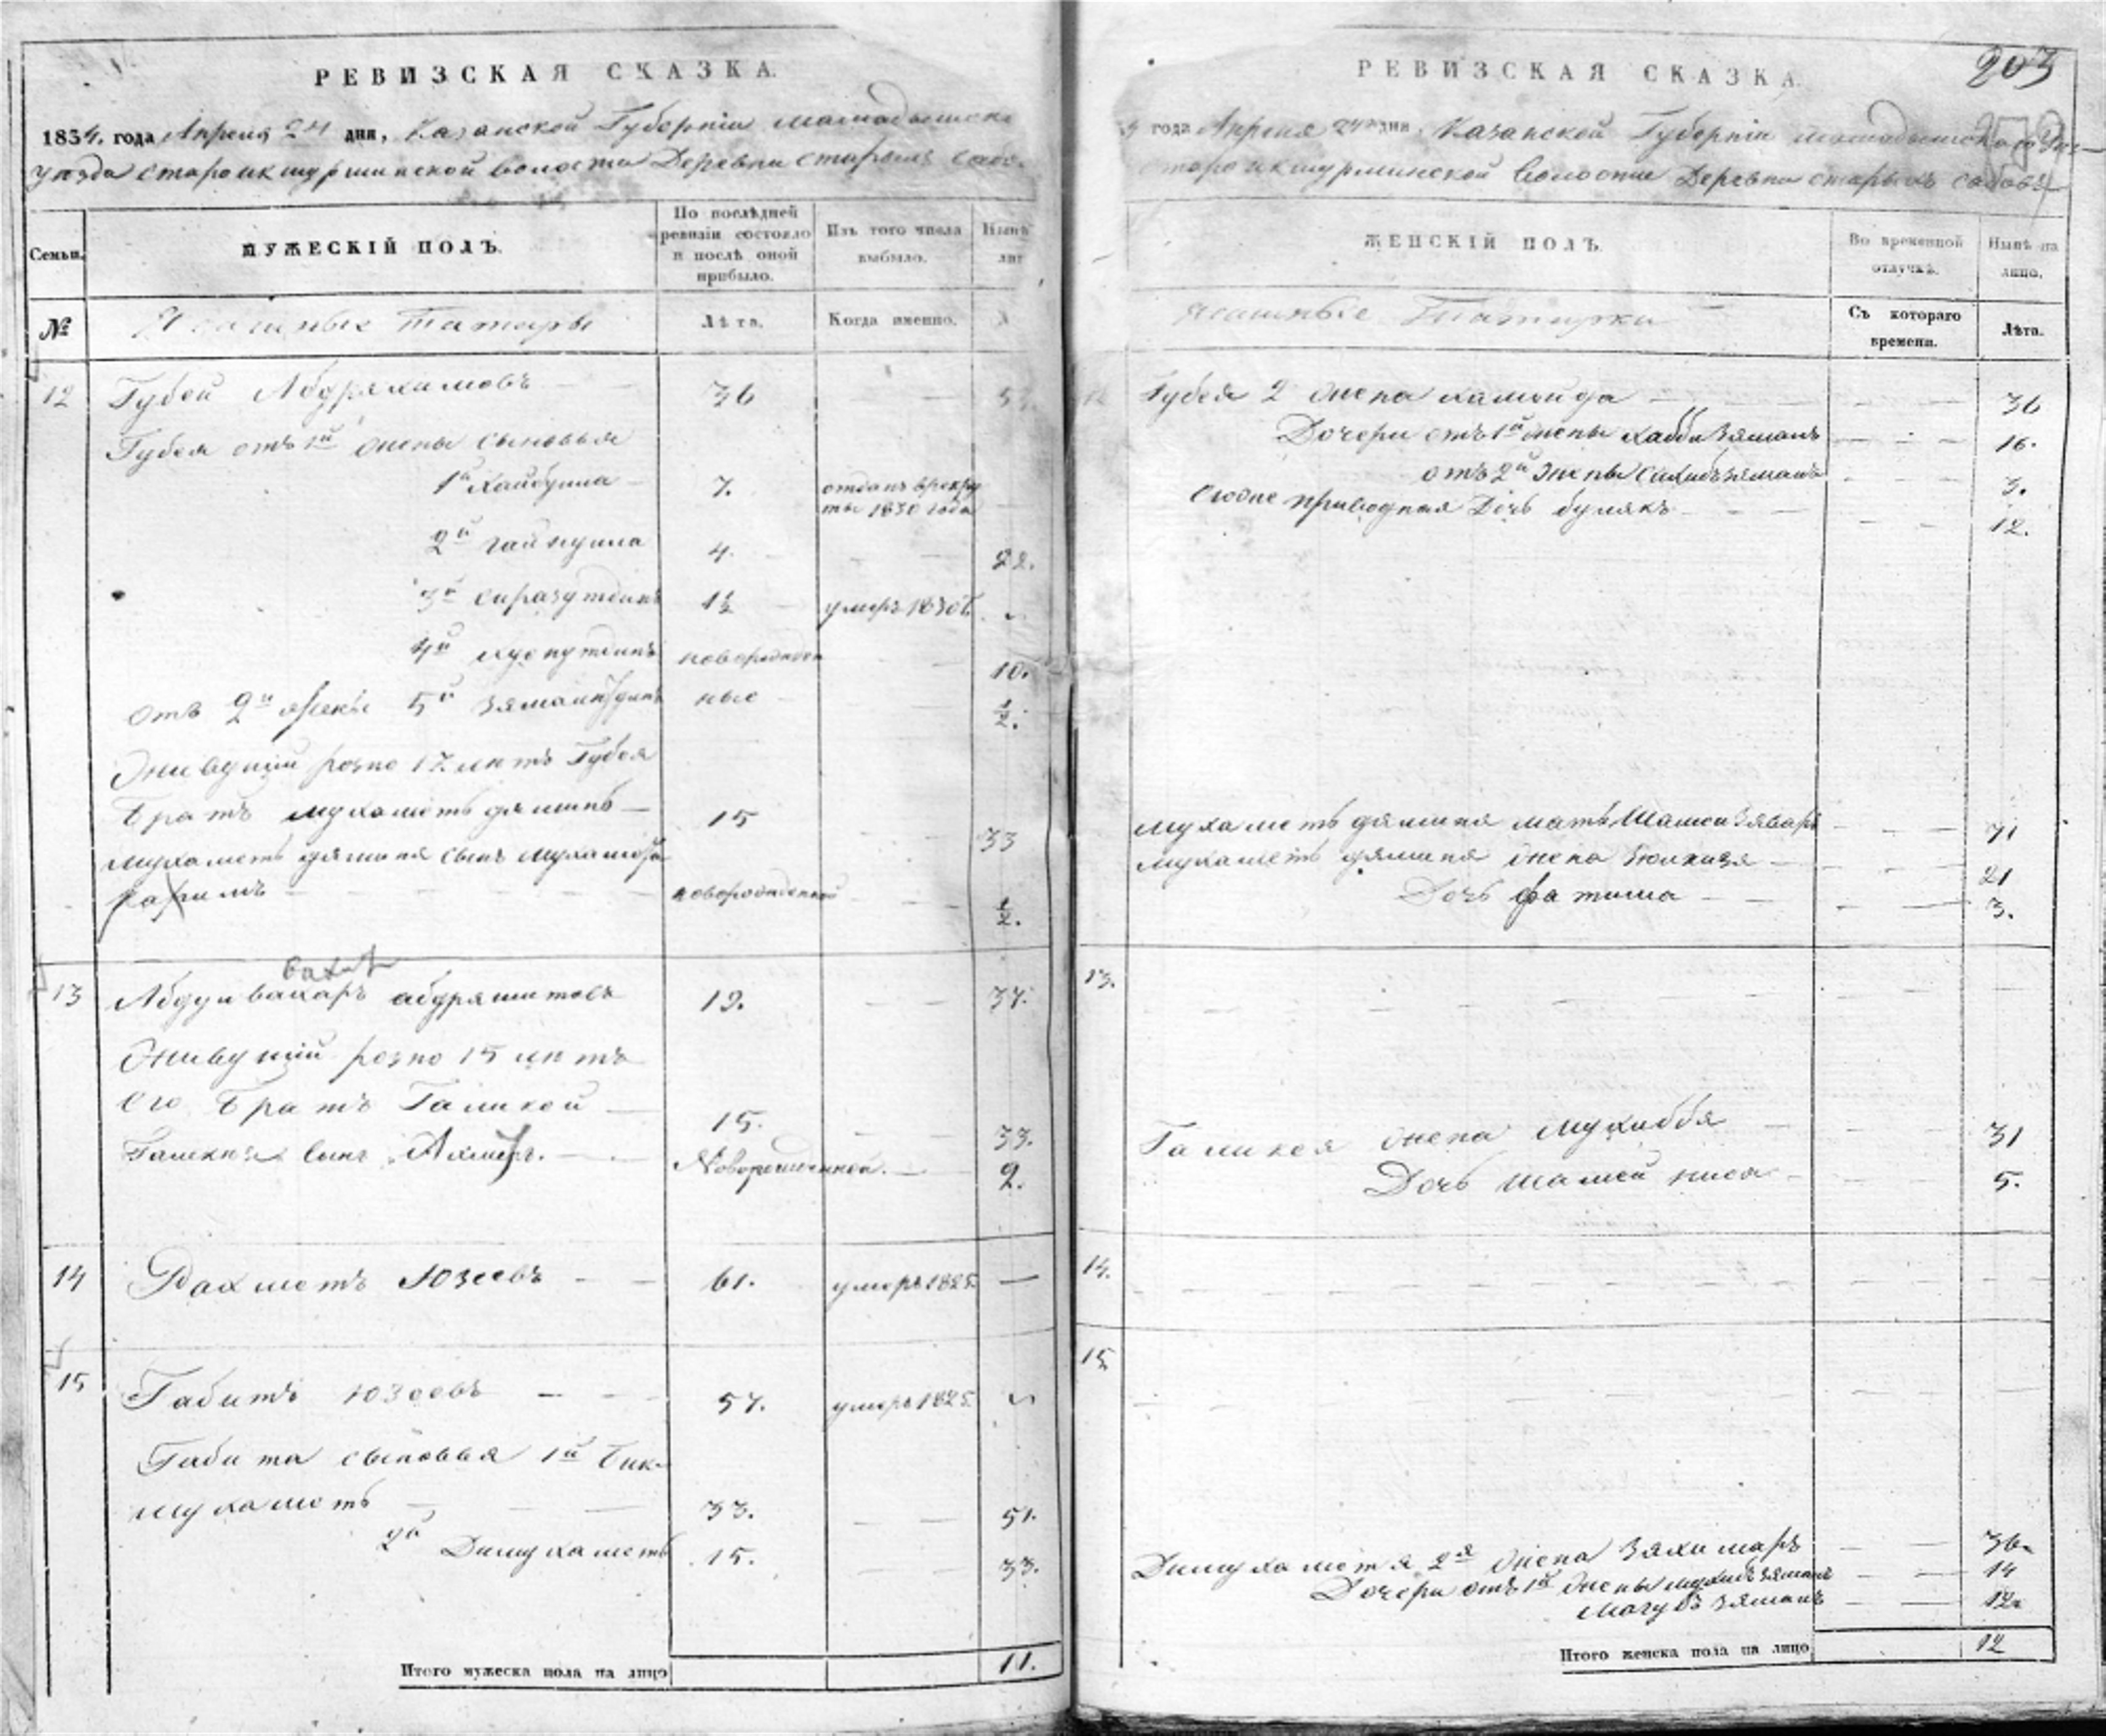 РЕВИЗСКАЯ СКАЗКА.
1834. года Апреля 24 дня, Казанской Губерніи мамадышска
уезда староикшурминской волости Деревни старыхъ сабо.
Семьи.
МУЖЕСКІЙ ПОЛЪ.
По послѣдней ревизіи состояло и послѣ оной прибыло.
Изъ того числа выбыло.
Нынѣ
лиц
№
Ясашные Татары
Лѣта.
Когда именно.
Л
12 Губей Абдряхимовъ 36
Губея отъ 1й жены сыновья
1й Хайбулла 7. отданъ врекру
ты 1830 года
2й Гайнулла 4. 22.
3й сиразутдинъ 1½ умеръ 1830г.
4й хуснутдинъ новорожден 10.
отъ 2й жены 5й Зямалутдинъ ные ½.
Живущій розно 17 лѣтъ Губея
Братъ мухаметьдяминъ 15 33
мухаметьдяминя сынъ мухаметза
рахимъ новорожденной ½.
вахит
13 Абдулвахапъ абдряшитовъ 19. 37.
Живущій розно 15 лѣтъ
его Братъ Галикей 15. 33.
Галикея сынъ Ахметъ. Новорожденной. 2.
14 Рахметъ Юзеевъ 61. умеръ 1825
15 Габитъ юзеевъ 57. умеръ 1825
Габита сыновья 1й Бик-
мухаметь 33. 51.
2й Димухаметь 15. 33.
Итого мужеска пола на лицо 11.
203
РЕВИЗСКАЯ СКАЗКА.
года Апреля 24 дня, Казанской Губерніи мамадышского
староикшурминской Волости Деревни старыхъ сабовъ
ЖЕНСКІЙ ПОЛЪ.
Во временной отлучкѣ.
Нынѣ на лицо.
Ясашные Татарки
Съ котораго времени.
Лѣта.
12 Губея 2 жена хамыйда 36
Дочери отъ 1й жены хаббизяманъ 16.
отъ 2й жены сахибъзяманъ 3.
приводная Дочь булякъ 12.
мухаметьдяминя мать Шамсизяваръ 71
мухаметьдяминя жена Зюлхизя 21
Дочь фатима 3.
13.
Галикея жена Мухиббя 31
Дочь шамсиниса 5.
14.
15.
Димухаметя 2я жена Зяхимаръ 36.
Дочери отъ 1й жены мухибъзяманъ 14
Магубъ зяманъ 12.
Итого женска пола на лицо 12